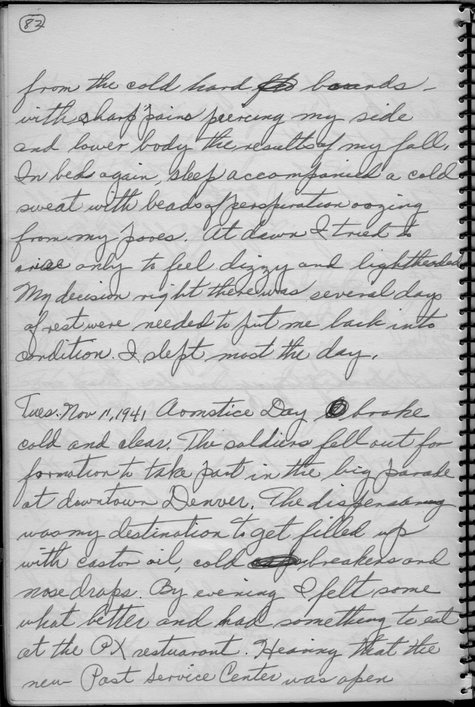 82
from the cold hard boards -
with sharp pains piercing my side
and lower body the results of my fall.
In bed again, sleep accompanied a cold
sweat with beads of perspiration oozing
from my pores. At dawn I tried to
arise only to feel dizzy and lightheaded
My decision right there was several days
of rest were needed to put me back into
condition. I slept most the day.
Tues. Nov 11, 1941 Armstice Day broke
cold and clear. The soldiers fell out for
formation to take part in the big parade
at downtown Denver. The dispensary
was my destination to get filled up
with castor oil, cold breakers and
nose drops. By evening I felt some
what better and had something to eat
at the PX restuaront. Hearing that the
new Post Service Center was open